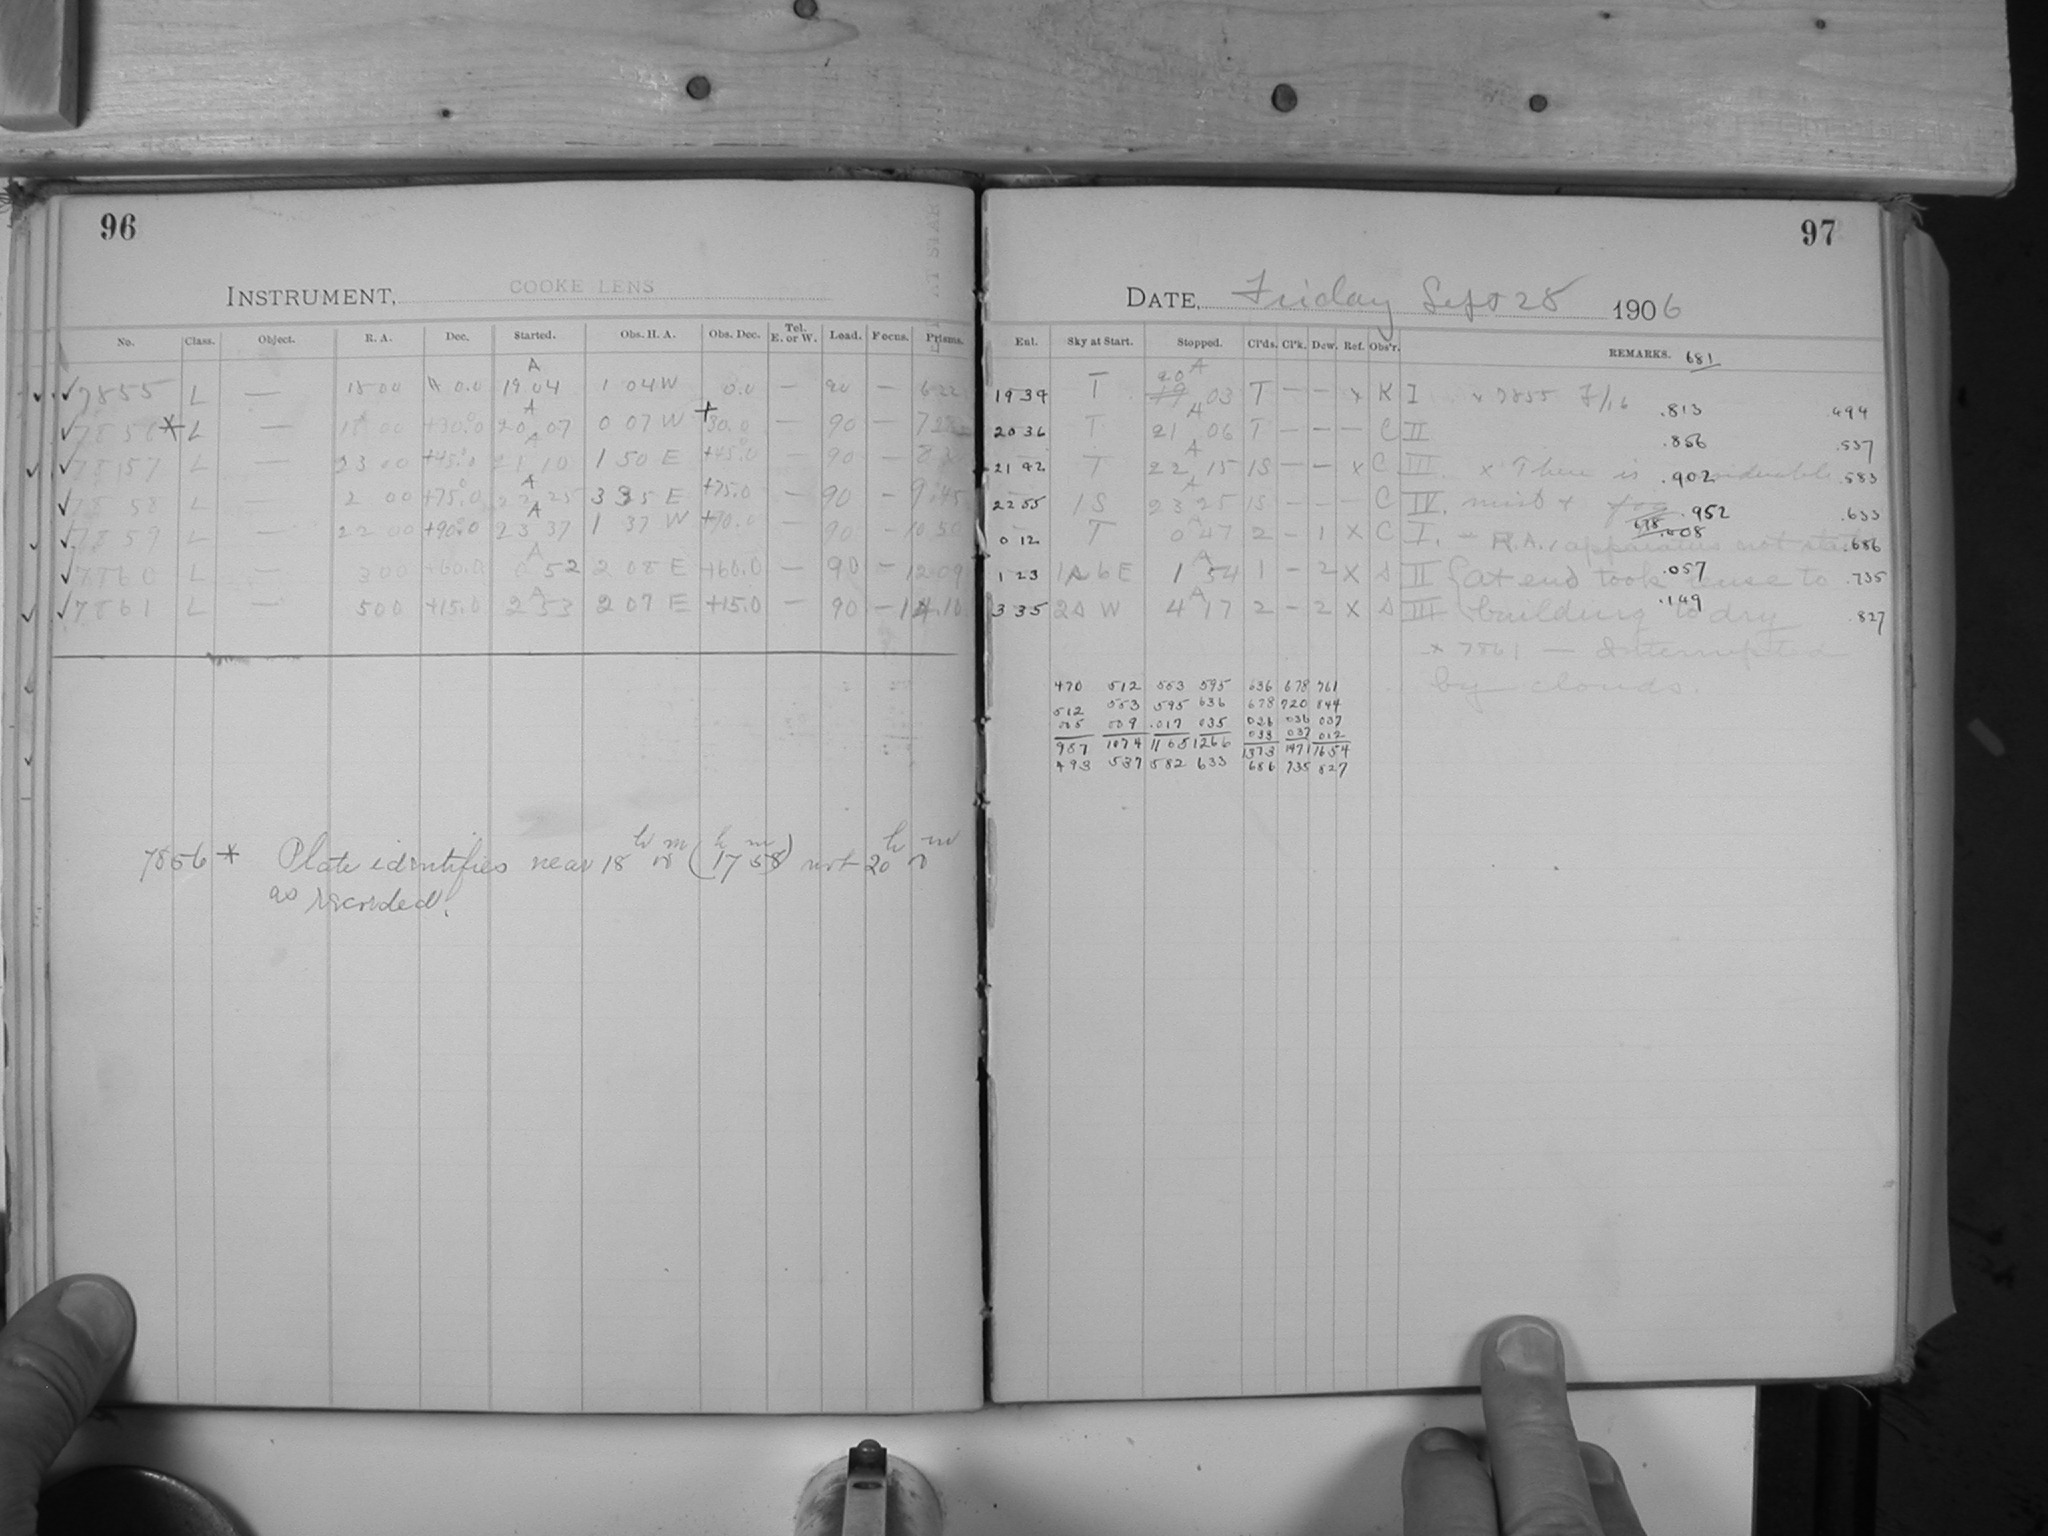 96
INSTRUMENT, COOKE LENS
No. Class. Object. R. A. Dec. Started. Obs. H. A. Obs. Dec. Tel. E. or W. Load. Focus. Prisms.
7855 L — 18 00 0.0 19 04 1 04 W 0.0 — 90 — 6 22
7856* L — 18 00 +30.0 20 07 0 07 W +30.0 — 90 —
7857 L — 23 00 +45.0 21 10 1 50 E +45.0 — 90 —
7858 L — 2 00 +75.0 22 25 3 35 E +75.0 — 90 — 9.45
7859 L — 22 00 +90.0 23 37 1 37 W +90.0 — 90 — 10 50
7860 L — 3 00 +60.0 0 52 2 08 E +60.0 — 90 — 12 09
7861 L — 5 00 +15.0 2 53 2 07 E +15.0 — 90 — 14.10
7856 * Plate identifies near 18 h m (17 58) h m not 20 h 0 m
as recorded.
97
DATE, Friday Sept 28 1906
Enl. Sky at Start. Stopped. Cl'ds. Cl'k. Dew. Ref. Obs'r. REMARKS. 681
19 39 T 20 03 T — — x K I x 7855 .813 .494
20 36 T 21 06 T — — — C II .856 .537
21 42 T 22 15 1S — — x C III x There is .902 .583
22 55 1 S 23 25 1S — — — C IV. mist & fog .952 .633
0 12 T 0 47 2 — 1 x C I. — R.A. apparatus not .008 .686
1 23 E 1 54 1 — 2 x S II at end took to .057 .735
3 35 W 4 17 2 — 2 x S III building to dry .149 .827
x 7861 — Interrupted
by clouds.
470 512 553 595 636 678 761
512 553 595 636 678 720 844
005 009 .017 035 026 036 037
033 037 012
987 1074 1165 1266 1373 1471 1654
493 537 582 633 686 735 827